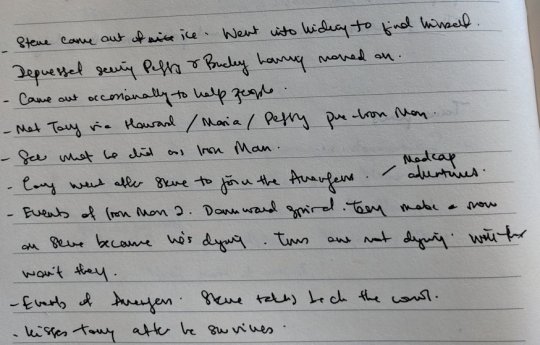 - Steve came out of ice. Went into hiding to find himself.
Depressed seeing Peggy & Bucky having moved on.
- Came out occasionally to help people.
- Met Tony via Howard / Maria / Peggy pre-Iron Man.
- See what he did as Iron Man.
- Tony went after Steve to join the Avengers. / Madcap adventures.
- Events of Iron Man 2. Downward spiral. Tony makes a move
on Steve because he's dying. Turns out not dying. Will they
won't they.
- Events of Avengers. Steve takes back the cowl.
- Kisses Tony after he survives.